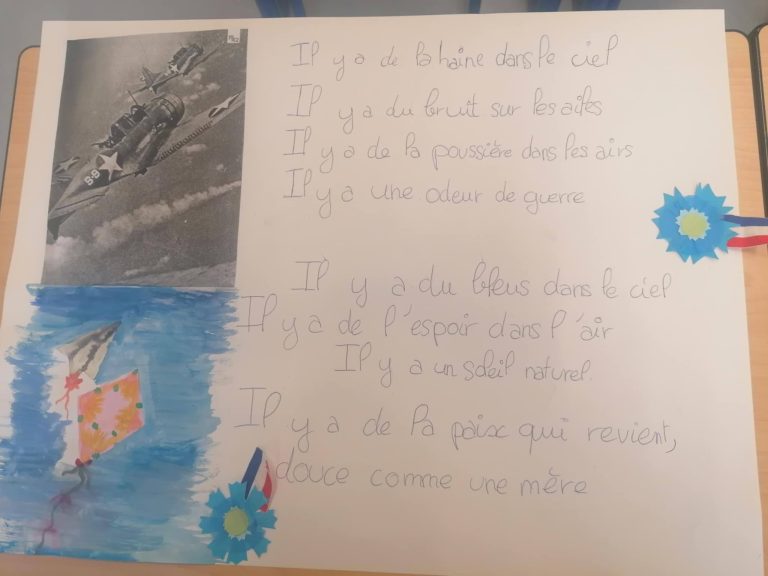 S-9
Il y a de la haine dans le ciel
Il y a du bruit sur les ailes
Il y a de la poussière dans les airs
Il y a une odeur de guerre
Il y a du bleus dans le ciel
Il y a de l'espoir dans l'air
Il y a un soleil naturel.
Il y a de la paix qui revient,
douce comme une mère